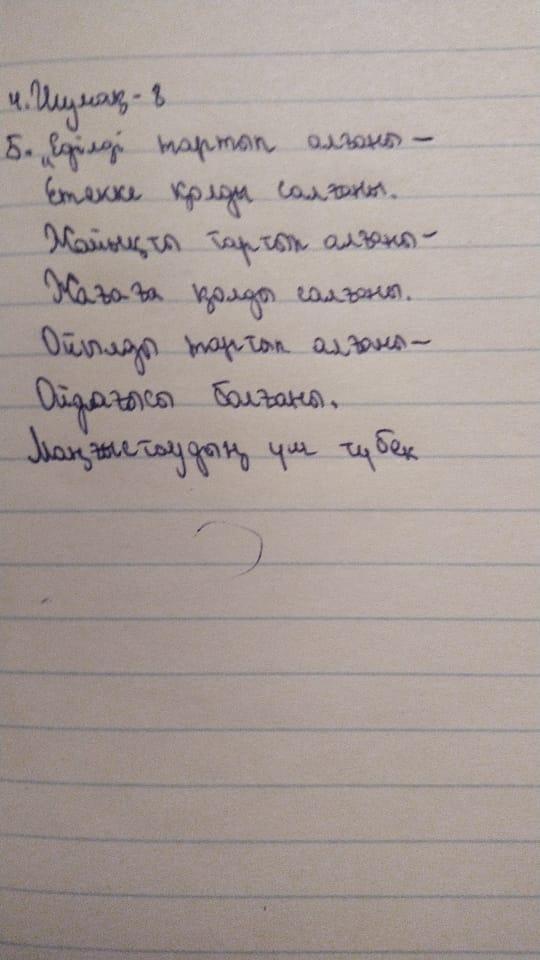 4. Шумақ - 8
Б. „Еділді тартып алғаны –
Етекке қолды салғаны.
Жайықты тартып алғаны –
Жағаға қолды салғаны.
Ойылды тартып алғаны –
Ойдағысы болғаны.
Маңғыстаудың үш түбек